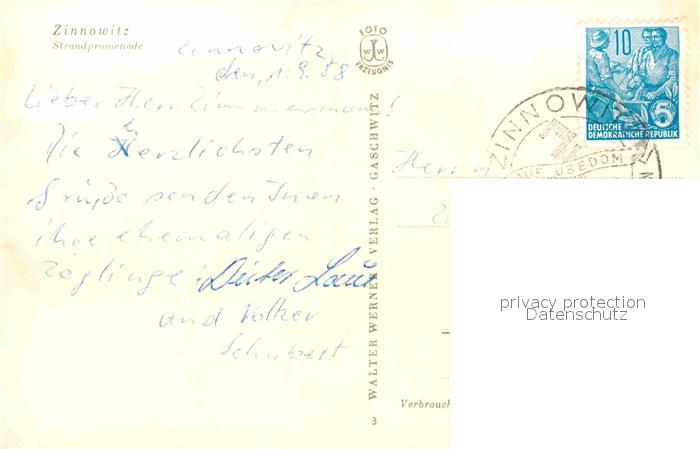 Zinnowitz
Strandpromenade
Zinnowitz
den, 1.9.58
Lieber Herr Zimmermann!
Die herzlichsten
Grüße senden Ihnen
ihre ehemaligen
Zöglinge! Dieter
und Volker
Schubert
FOTO
ERZEUGNIS
WALTER WERNER VERLAG · GASCHWITZ
3
Herrn
Verbrauch
10
5
DEUTSCHE
DEMOKRATISCHE REPUBLIK
ZINNOWITZ
AUF USEDOM
privacy protection
Datenschutz